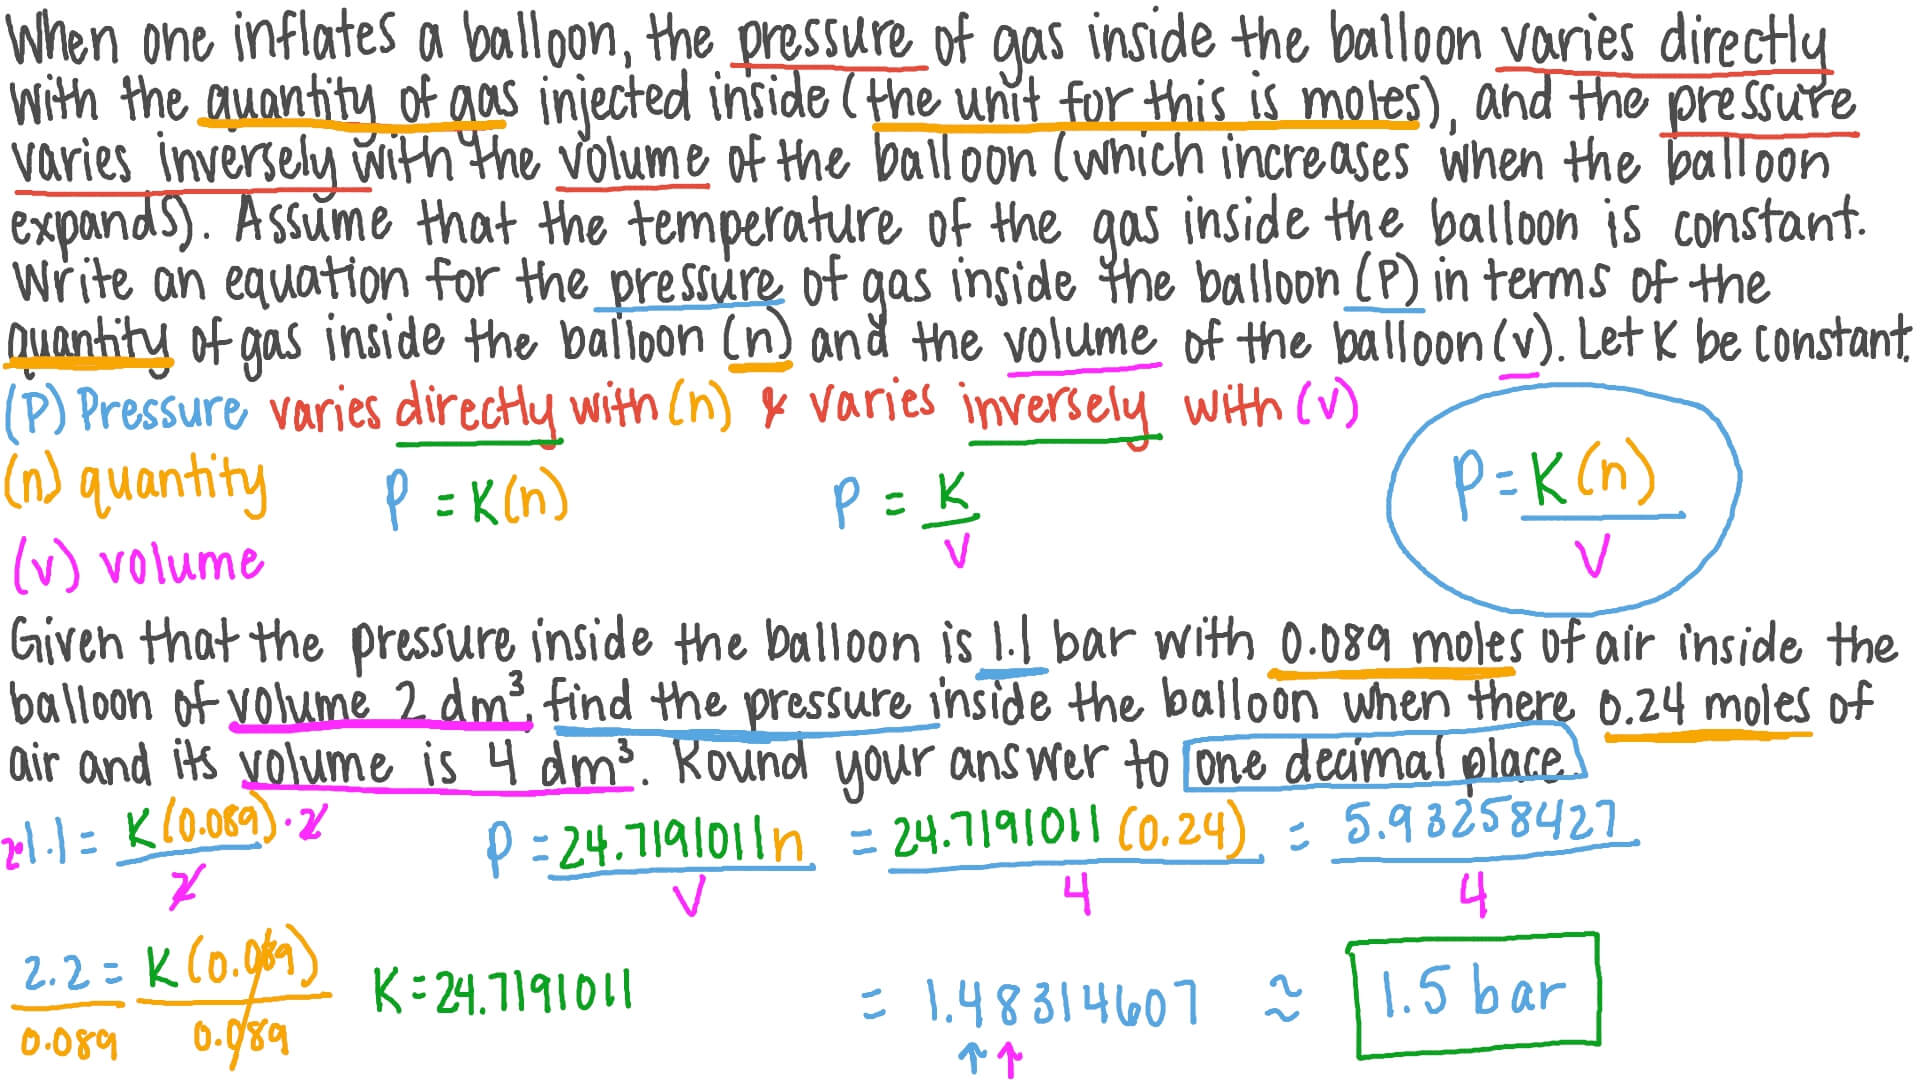 When one inflates a balloon, the pressure of gas inside the balloon varies directly
with the quantity of gas injected inside (the unit for this is moles), and the pressure
varies inversely with the volume of the balloon (which increases when the balloon
expands). Assume that the temperature of the gas inside the balloon is constant.
Write an equation for the pressure of gas inside the balloon (P) in terms of the
quantity of gas inside the balloon (n) and the volume of the balloon (v). Let K be constant.
(P) Pressure varies directly with (n) & varies inversely with (v)
(n) quantity P = K(n) P = K/V P = K(n)/V
(v) volume
Given that the pressure inside the balloon is 1.1 bar with 0.089 moles of air inside the
balloon of volume 2 dm³, find the pressure inside the balloon when there 0.24 moles of
air and its volume is 4 dm³. Round your answer to one decimal place.
2•1.1 = K(0.089)/2 • 2 P = 24.7191011n/V = 24.7191011(0.24)/4 = 5.93258427/4
2.2/0.089 = K(0.089)/0.089 K = 24.7191011 = 1.48314607 ≈ 1.5 bar